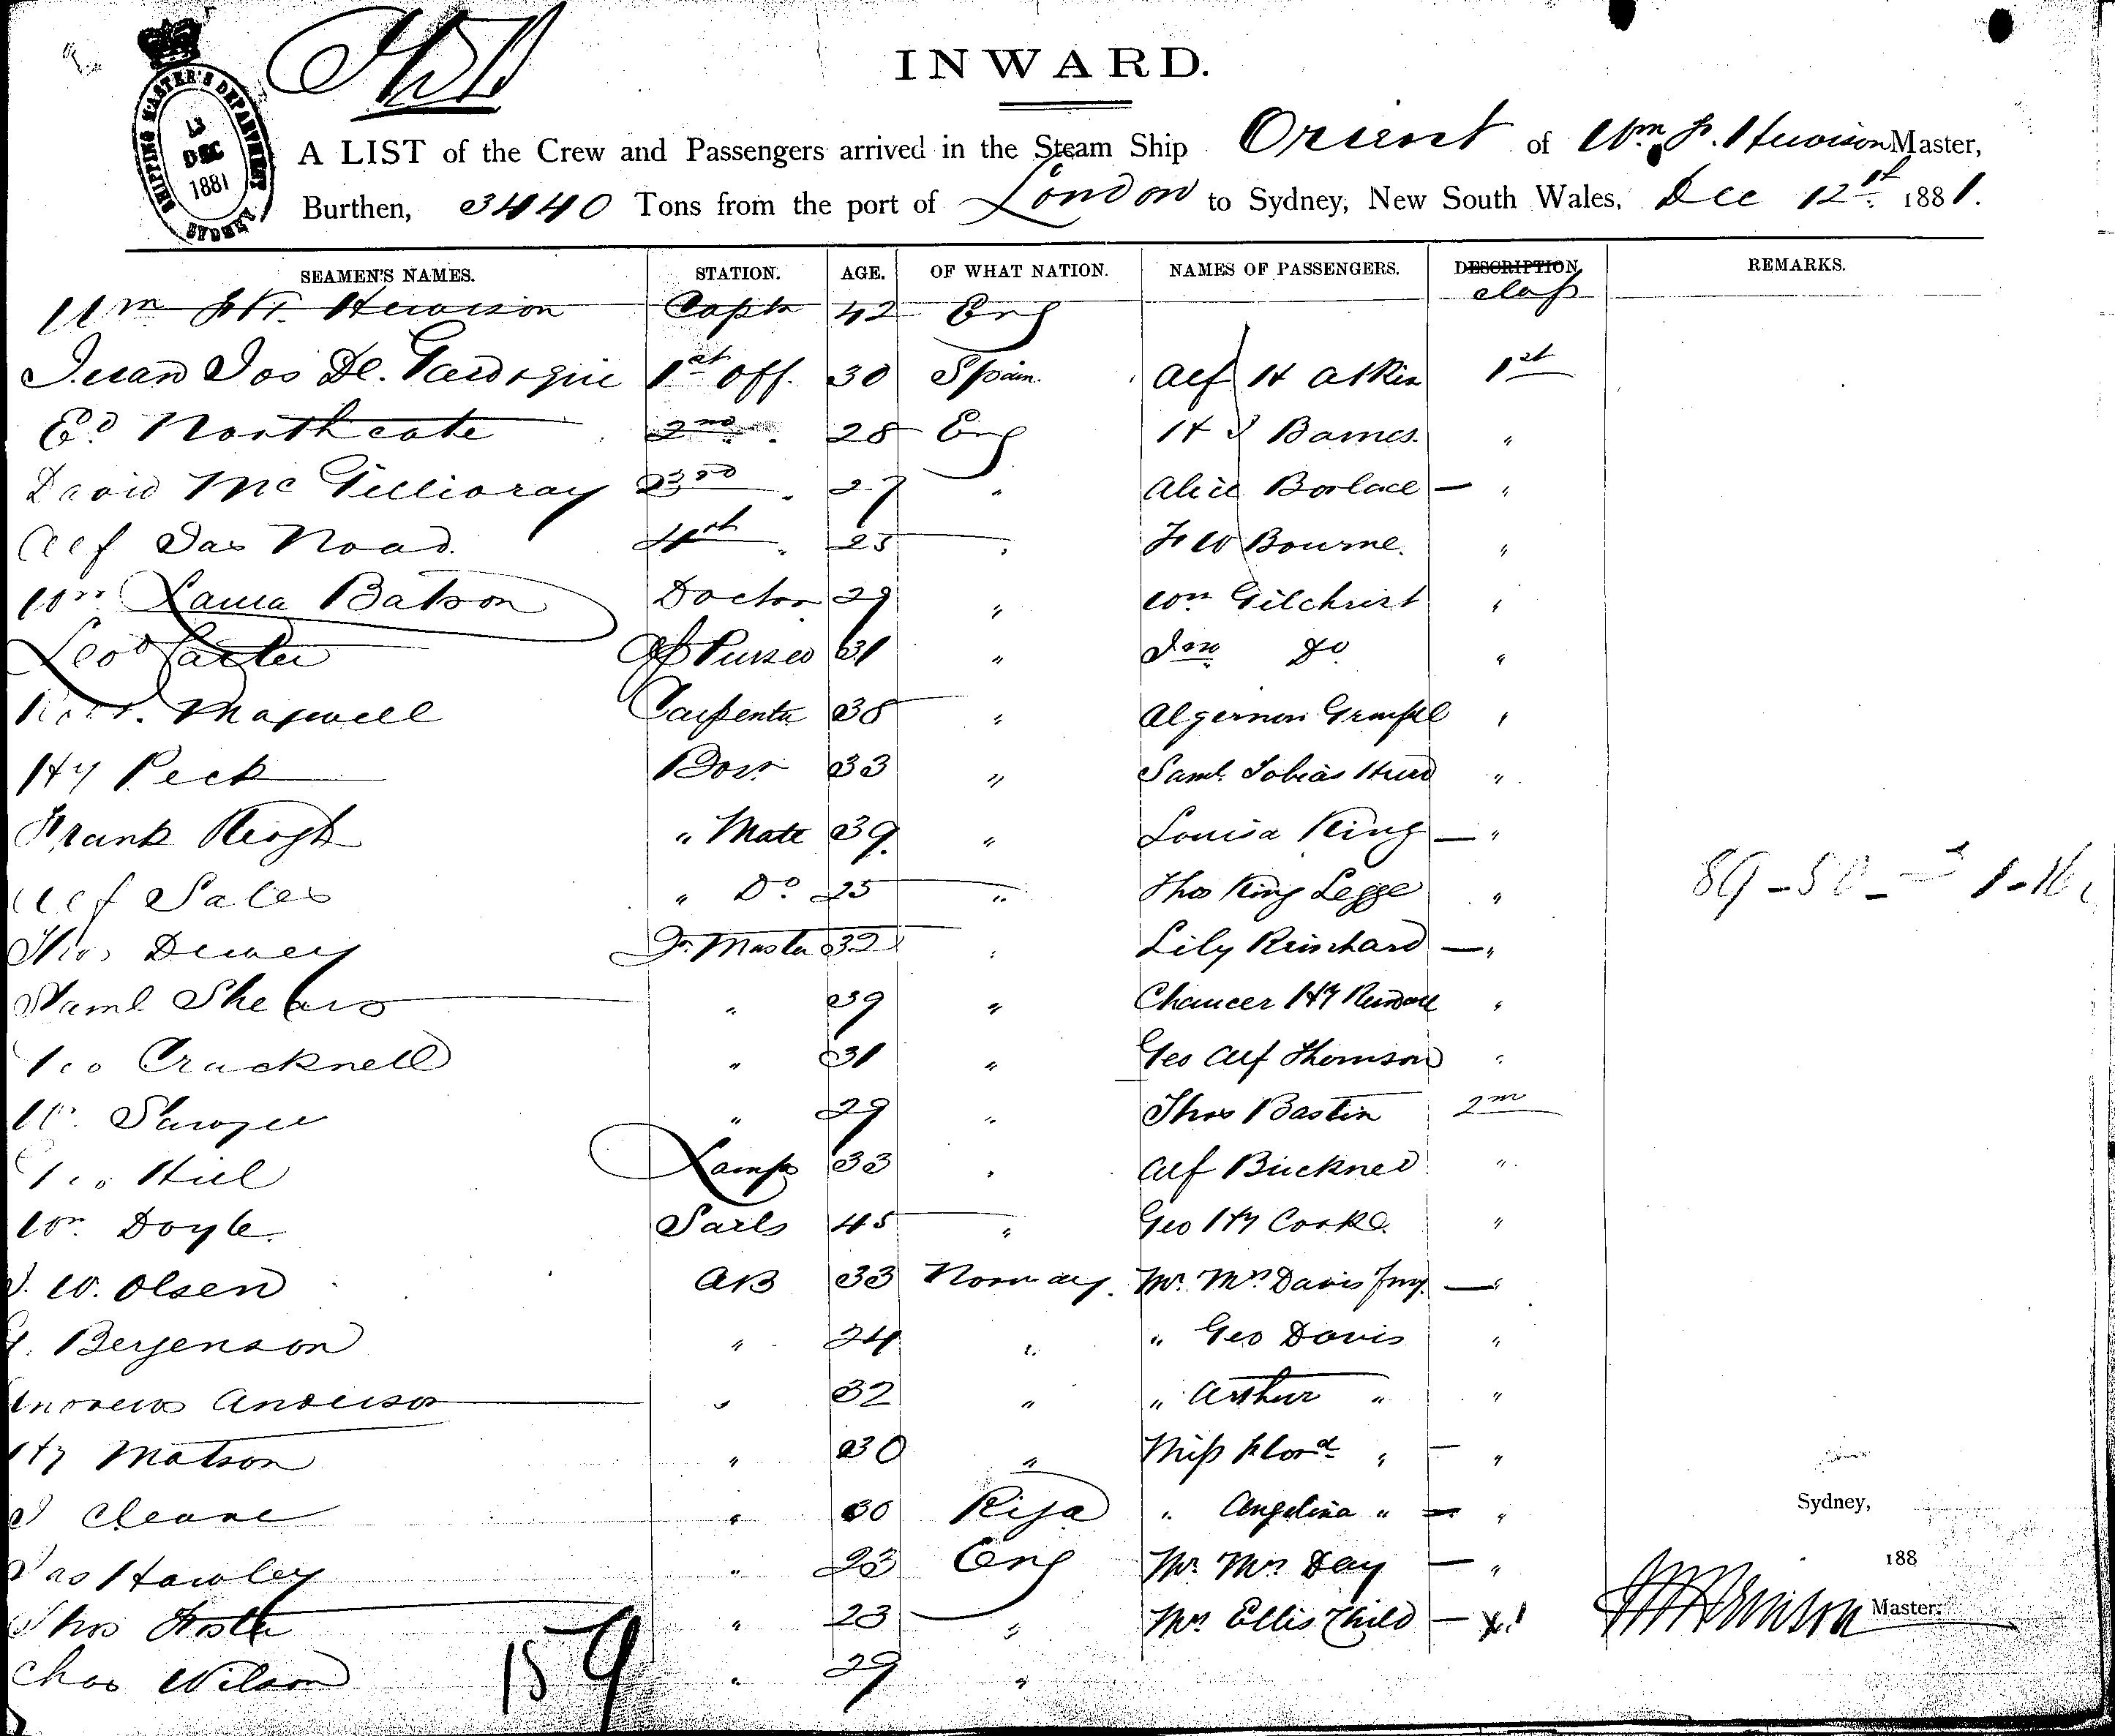 INWARD.
SHIPPING MASTER'S DEPARTMENT
13
DEC
1881
SYDNEY
A LIST of the Crew and Passengers arrived in the Steam Ship Orient of Wm Hewison Master,
Burthen, 3440 Tons from the port of London to Sydney, New South Wales, Dec 12th 1881.
SEAMEN'S NAMES. STATION. AGE. OF WHAT NATION. NAMES OF PASSENGERS. DESCRIPTION class REMARKS.
Wm Hewison Captn 42 Eng
Juan Jos De. 1st Off. 30 Spain. Alf H Atkin 1st
Ed Northcote 2nd 28 Eng H J Barnes. "
David McGillivray 3rd 27 " Alice Borlace — "
Alf Jas Noad. 4th 25 " F W Bourne. "
Wm Batson Doctor 29 " Wm Gilchrist "
Leod Carter Purser 31 " Jno Do "
Robt. Maxwell Carpenter 38 " Algernon "
Hy Peck Bosn 33 " Saml. Tobias Hurd "
Frank Keogh " Mate 39 " Louisa King — "
Alf Sales " Do 25 " Thos King Legge "
89-50-
Thos Dewey Qr. Master 32 " Lily Reinhard — "
Saml " 39 " Chaucer Hy "
Geo Cracknell " 31 " Geo Alf Thomson "
W. Sawyer " 29 " Thos Bastin 2nd
Geo Hill Lamps 33 " Alf Bucknel "
Wm Doyle. Sails 45 " Geo Hy Cooke. "
J. W. Olsen AB 33 Norway. Mr. Mrs Davis — "
Bergenson " 24 " " Geo Davis "
Andrew Anderson " 32 " " Arthur " "
Hy Matson " 30 " Miss " — "
J Cleare " 30 Riga " Angelina " — "
Sydney,
Jas Hawley " 23 Eng Mr. Mrs Day — "
188
Thos Foster " 23 " Mrs Ellis Child —
Master.
Chas Wilson " 29 "
159